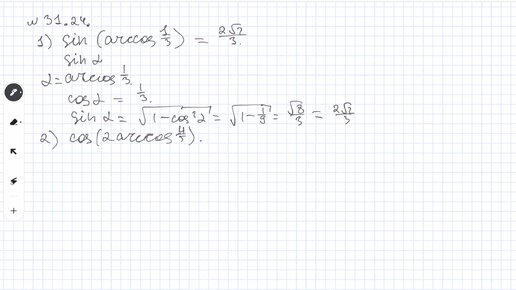 № 31.24.
1) sin (arccos 1/3) = 2√2/3.
sin α
α = arccos 1/3.
cos α = 1/3.
sin α = √(1-cos²α) = √(1-1/9) = √8/3 = 2√2/3
2) cos(2 arccos 4/5).